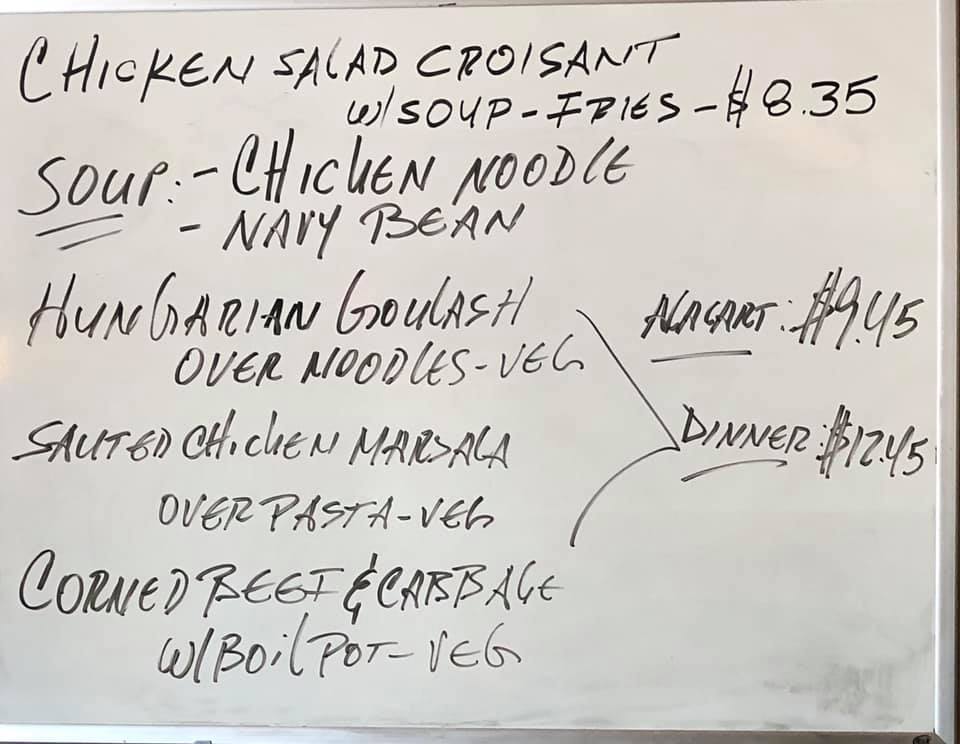 CHICKEN SALAD CROISANT
W/SOUP-FRIES-$8.35
SOUP:-CHICKEN NOODLE
- NAVY BEAN
HUNGARIAN GOULASH
OVER NOODLES-VEG
ALACART: $9.45
SAUTED CHICKEN MARSALA
DINNER: $12.45
OVER PASTA-VEG
CORNED BEEF & CABBAGE
W/BOIL POT- VEG